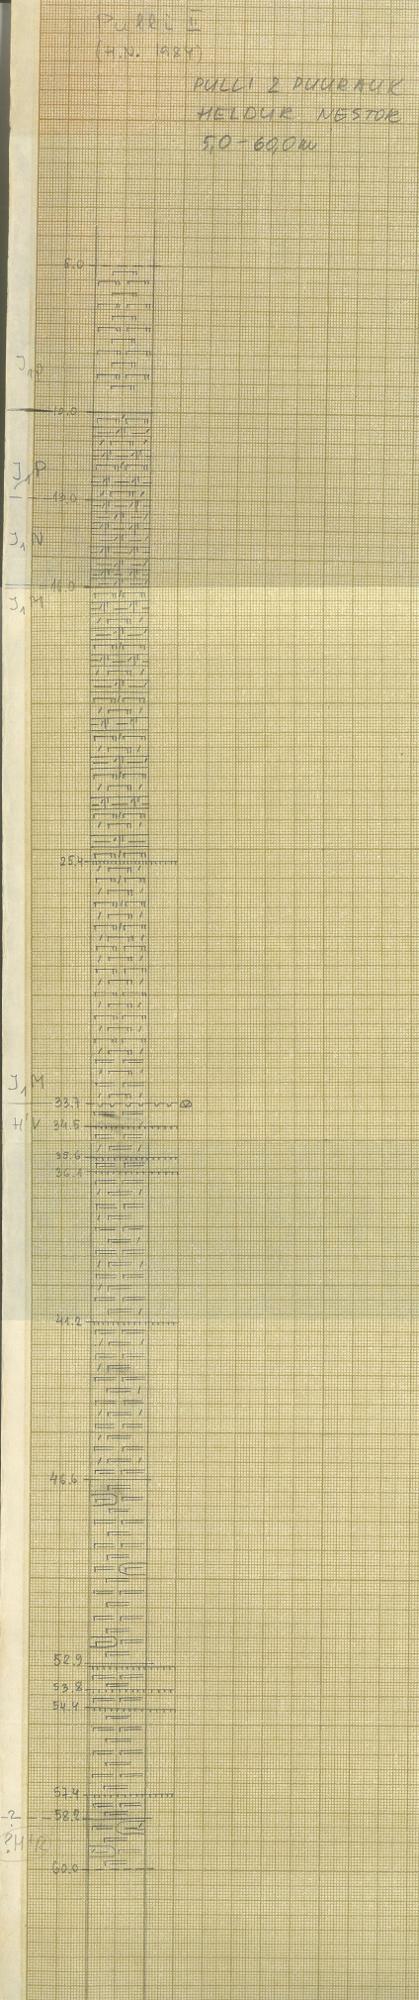 Pulli II
(H.N. 1984)
PULLI 2 PUURAUK
HELDUR NESTOR
5,0-60,0m
5.0
10.0
J₁P
13.0
J₁N
16.0
J₁M
25.4
J₁M
33.7
H'V
34.5
35.6
36.1
41.2
46.6
52.9
53.8
54.4
57.4
-?- 58.2
60.0